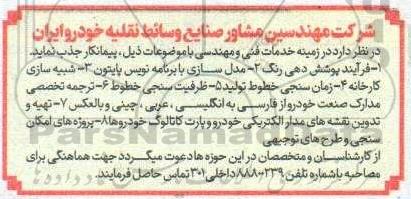 شرکت مهندسین مشاور صنایع وسائط نقلیه خودرو ایران
در نظر دارد در زمینه خدمات فنی و مهندسی با موضوعات ذیل، پیمانکار جذب نماید.
۱-فرآیند پوشش دهی رنگ ۲- مدل سازی با برنامه نویس پایتون ۳- شبیه سازی
کارخانه ۴- زمان سنجی خطوط تولید ۵- ظرفیت سنجی خطوط ۶- ترجمه تخصصی
مدارک صنعت خودرو از فارسی به انگلیسی ، عربی ، چینی و بالعکس ۷- تهیه و
تدوین نقشه های مدار الکتریکی خودرو و پارت کاتالوگ خودروها ۸- پروژه های امکان
سنجی و طرح های توجیهی
از کارشناسان و متخصصان در این حوزه ها دعوت میگردد جهت هماهنگی برای
مصاحبه با شماره تلفن ۸۸۸۰۰۲۳۹ داخلی ۳۰۱ تماس حاصل فرمایند.
ParsNamadData